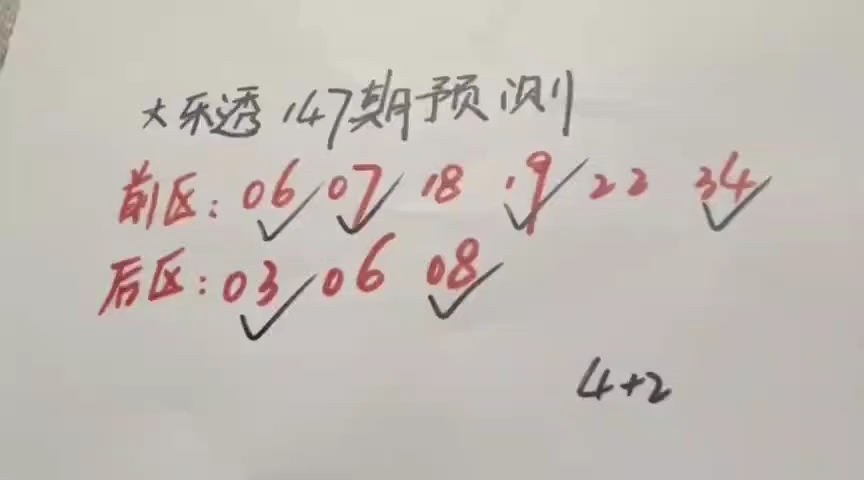 大乐透147期预测
前区:06 07 18 19 22 34
后区:03 06 08
4+2